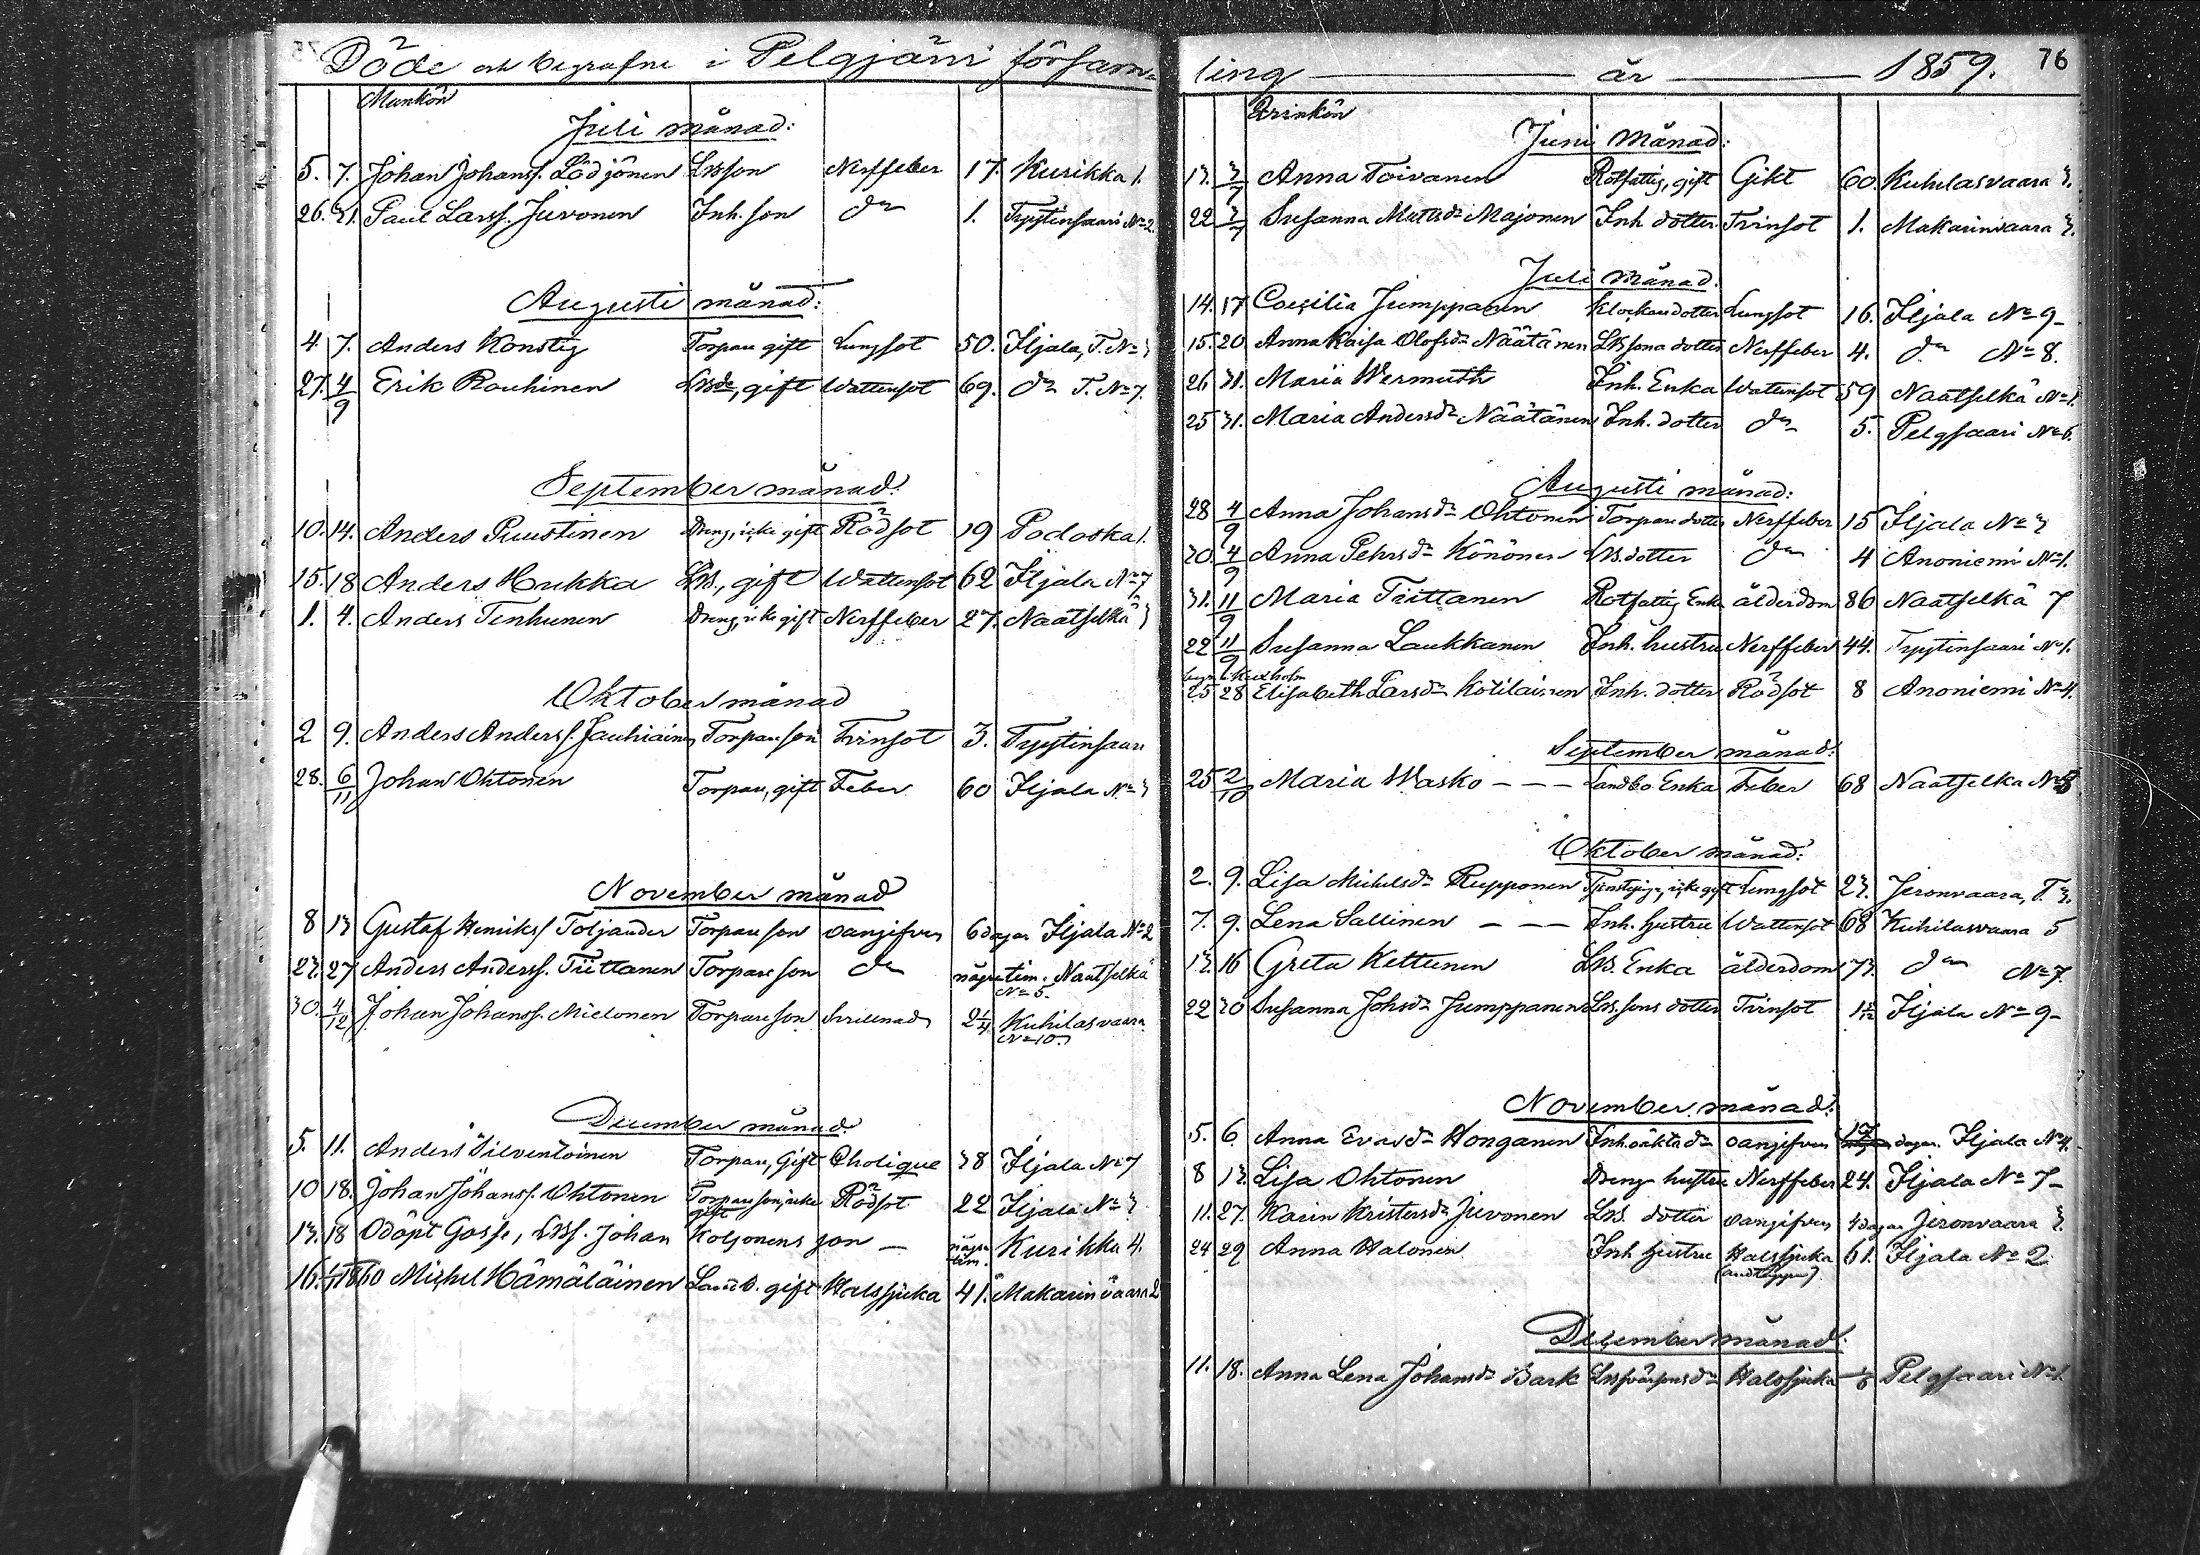 Döde och begrafne i Pelgjärvi försam=
Mankön
Juli månad:
5. 7. Johan Johanss. Lödjönen Lbsson Nerffeber 17. Kurikka 1.
26. 31. Paul Larss. Juvonen Inh. son do 1. Tyytinsaari No 2.
Augusti månad:
4. 7. Anders Konstig Torpare gift Lungsot 50. Iljala, T. No 3
27. 4/9 Erik Rouhinen Lbde, gift Wattensot 69. do T. No 7.
September månad:
10. 14. Anders Puustinen Dreng, icke gift Rödsot 19 Podoska 1.
15. 18 Anders Hukka Lb., gift Wattensot 62 Iljala No 7
1. 4. Anders Tenhunen Dreng, icke gift Nerffeber 27. Naatselkä 3
Oktober månad
2 9. Anders Anderss. Jauhiainen Torpare son Tvinsot 3. Tyytinsaari
28. 6/11 Johan Ohtonen Torpare, gift Feber 60 Iljala No 3
November månad
8 13 Gustaf Henrikss. Toljander Torpare son oangifven 6 dagar Iljala No 2
23. 27 Anders Anderss. Tiittanen Torpare son do några tim. Naatselkä No 5.
30. 4/12 Johan Johanss. Mielonen Torpare son 2 1/4 Kuhilasvaara No 10.
December månad
5. 11. Anders Silventoinen Torpare, Gift Cholique 38 Iljala No 7
10 18. Johan Johanss. Ohtonen Torpare son, icke gift Rödsot 22 Iljala No 3
13. 18 Odöpt Gosse, Lbs. Johan Koljonens son — några tim. Kurikka 4.
16. 1/1 1860 Michel Hämäläinen Landb. gift Halssjuka 41. Makarinvaara 2
ling — år — 1859. 76
Qvinkön
Junii Månad:
13. 3/7 Anna Toivanen Rotfattig, gift Gikt 60. Kuhilasvaara 3.
22 3/7 Susanna Matsdr Majonen Inh dotter Tvinsot 1. Makarinvaara 3.
Juli Månad.
14. 17 Coecilia Jumppanen Klockaredotter Lungsot 16. Iljala No 9
15. 20 Anna Kaisa Olofsdr Näätänen Lbs sons dotter Nerffeber 4. do No 8.
26 31. Maria Wermuth Inh. Enka Wattensot 59 Naatselkä No 1.
25 31. Maria Andersdr Näätänen Inh. dotter do 5. Pelgsaari No 6.
Augusti månad:
28 4/9 Anna Johansdr Ohtonen Torpare dotter Nerffeber 15 Iljala No 3
30. 4/9 Anna Pehrsdr Könönen Lbs. dotter do 4 Anoniemi No 1.
31. 11/9 Maria Tiittanen Rotfattig Enka ålderdom 86 Naatselkä 7
22 11/9 Susanna Laukkanen Inh. hustru Nerffeber 44. Tyytinsaari No 1.
begr. i Kexholm
25 28 Elisabeth Larsdr Kotilainen Inh. dotter Rödsot 8 Anoniemi No 4.
September månad:
25 2/10 Maria Wasko - - - Landbo Enka Feber 68 Naatselkä No 8
Oktober månad:
2. 9. Lisa Michelsdr Repponen Tjensteqv., icke gift Lungsot 23. Jeronvaara, T. 3.
7. 9. Lena Sallinen - - - Inh. Hustru Wattensot 68 Kuhilasvaara 5
13. 16 Greta Kettunen Lbs. Enka ålderdom 73. do No 7.
22 30 Susanna Johsdr Jumppanen Lbs. sons dotter Tvinsot Iljala No 9
November månad:
5. 6. Anna Evasdr Honganen Inh. oäkta dr oangifven dagar. Iljala No 4.
8 13. Lisa Ohtonen Dreng hustru Nerffeber 24. Iljala No 7
11. 27. Karin Kristersdr Juvonen Lbs. dotter oangifven 4 dagar Jeronvaara 3.
24 29 Anna Halonen Inh Hustru Halssjuka (andtäppa). 61. Iljala No 2.
December månad:
11. 18. Anna Lena Johansdr Bark Halssjuka Pelgsaari No 1.